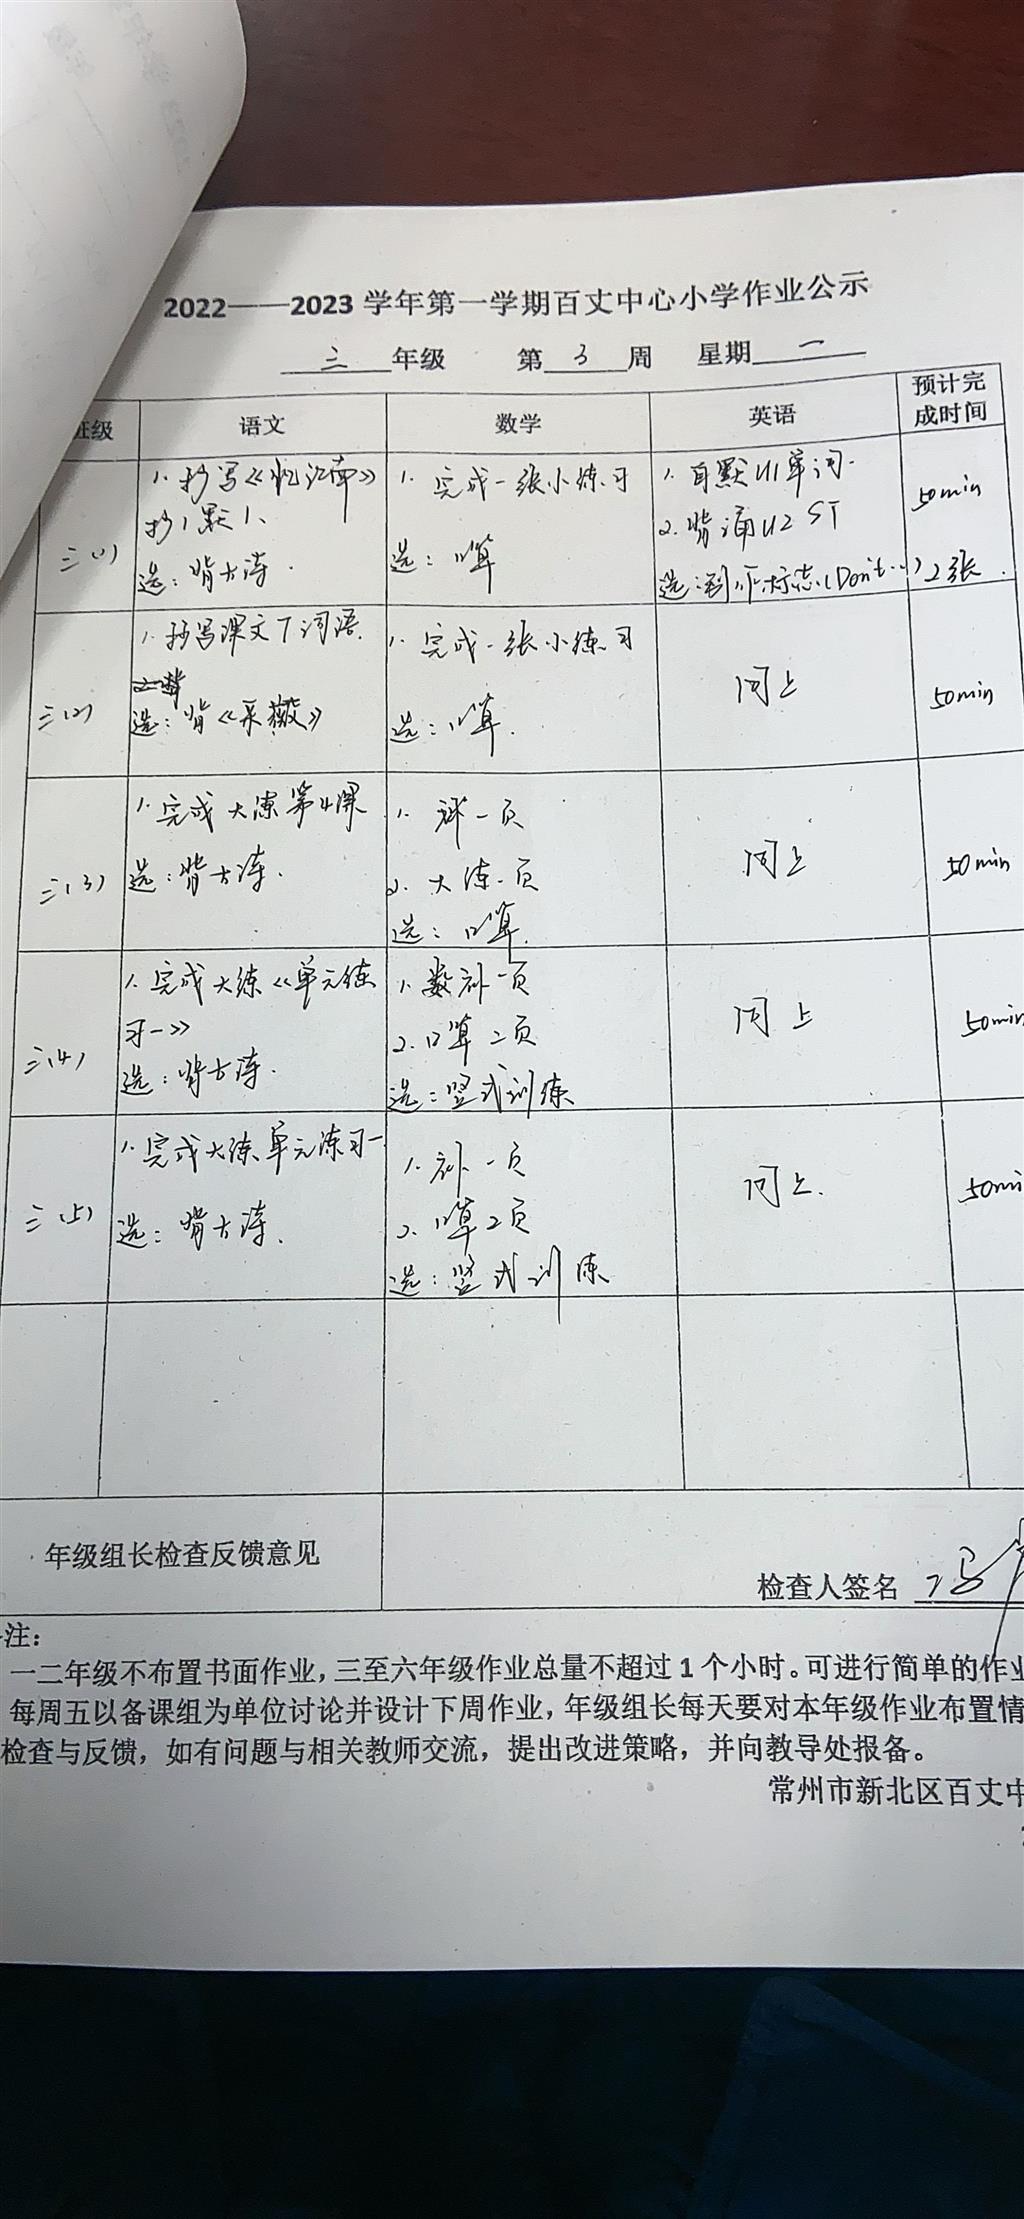 2022——2023 学年第一学期百丈中心小学作业公示
三 年级 第 3 周 星期 一
班级 语文 数学 英语 预计完成时间
三(1)
1. 抄写《忆江南》
抄1默1、
选：背古诗.
1. 完成一张小练习
选：口算
1. 自默U1单词.
2. 背诵U2 ST
选：制作标志(Don't…)2张.
50min
三(2)
1. 抄写课文7词语.
选：背《采薇》
1. 完成一张小练习
选：口算.
同上
50min
三(3)
1. 完成大练第4课
选：背古诗.
1. 补一页
2. 大练一页
选：口算.
同上
50min
三(4)
1. 完成大练《单元练
习一》
选：背古诗.
1. 数补一页
2. 口算二页
选：竖式训练
同上
50min
三(5)
1. 完成大练单元练习一
选：背古诗.
1. 补一页
2. 口算2页
选：竖式训练
同上.
50mi
年级组长检查反馈意见
检查人签名
注：
一二年级不布置书面作业，三至六年级作业总量不超过 1 个小时。可进行简单的作业
每周五以备课组为单位讨论并设计下周作业，年级组长每天要对本年级作业布置情
检查与反馈，如有问题与相关教师交流，提出改进策略，并向教导处报备。
常州市新北区百丈中